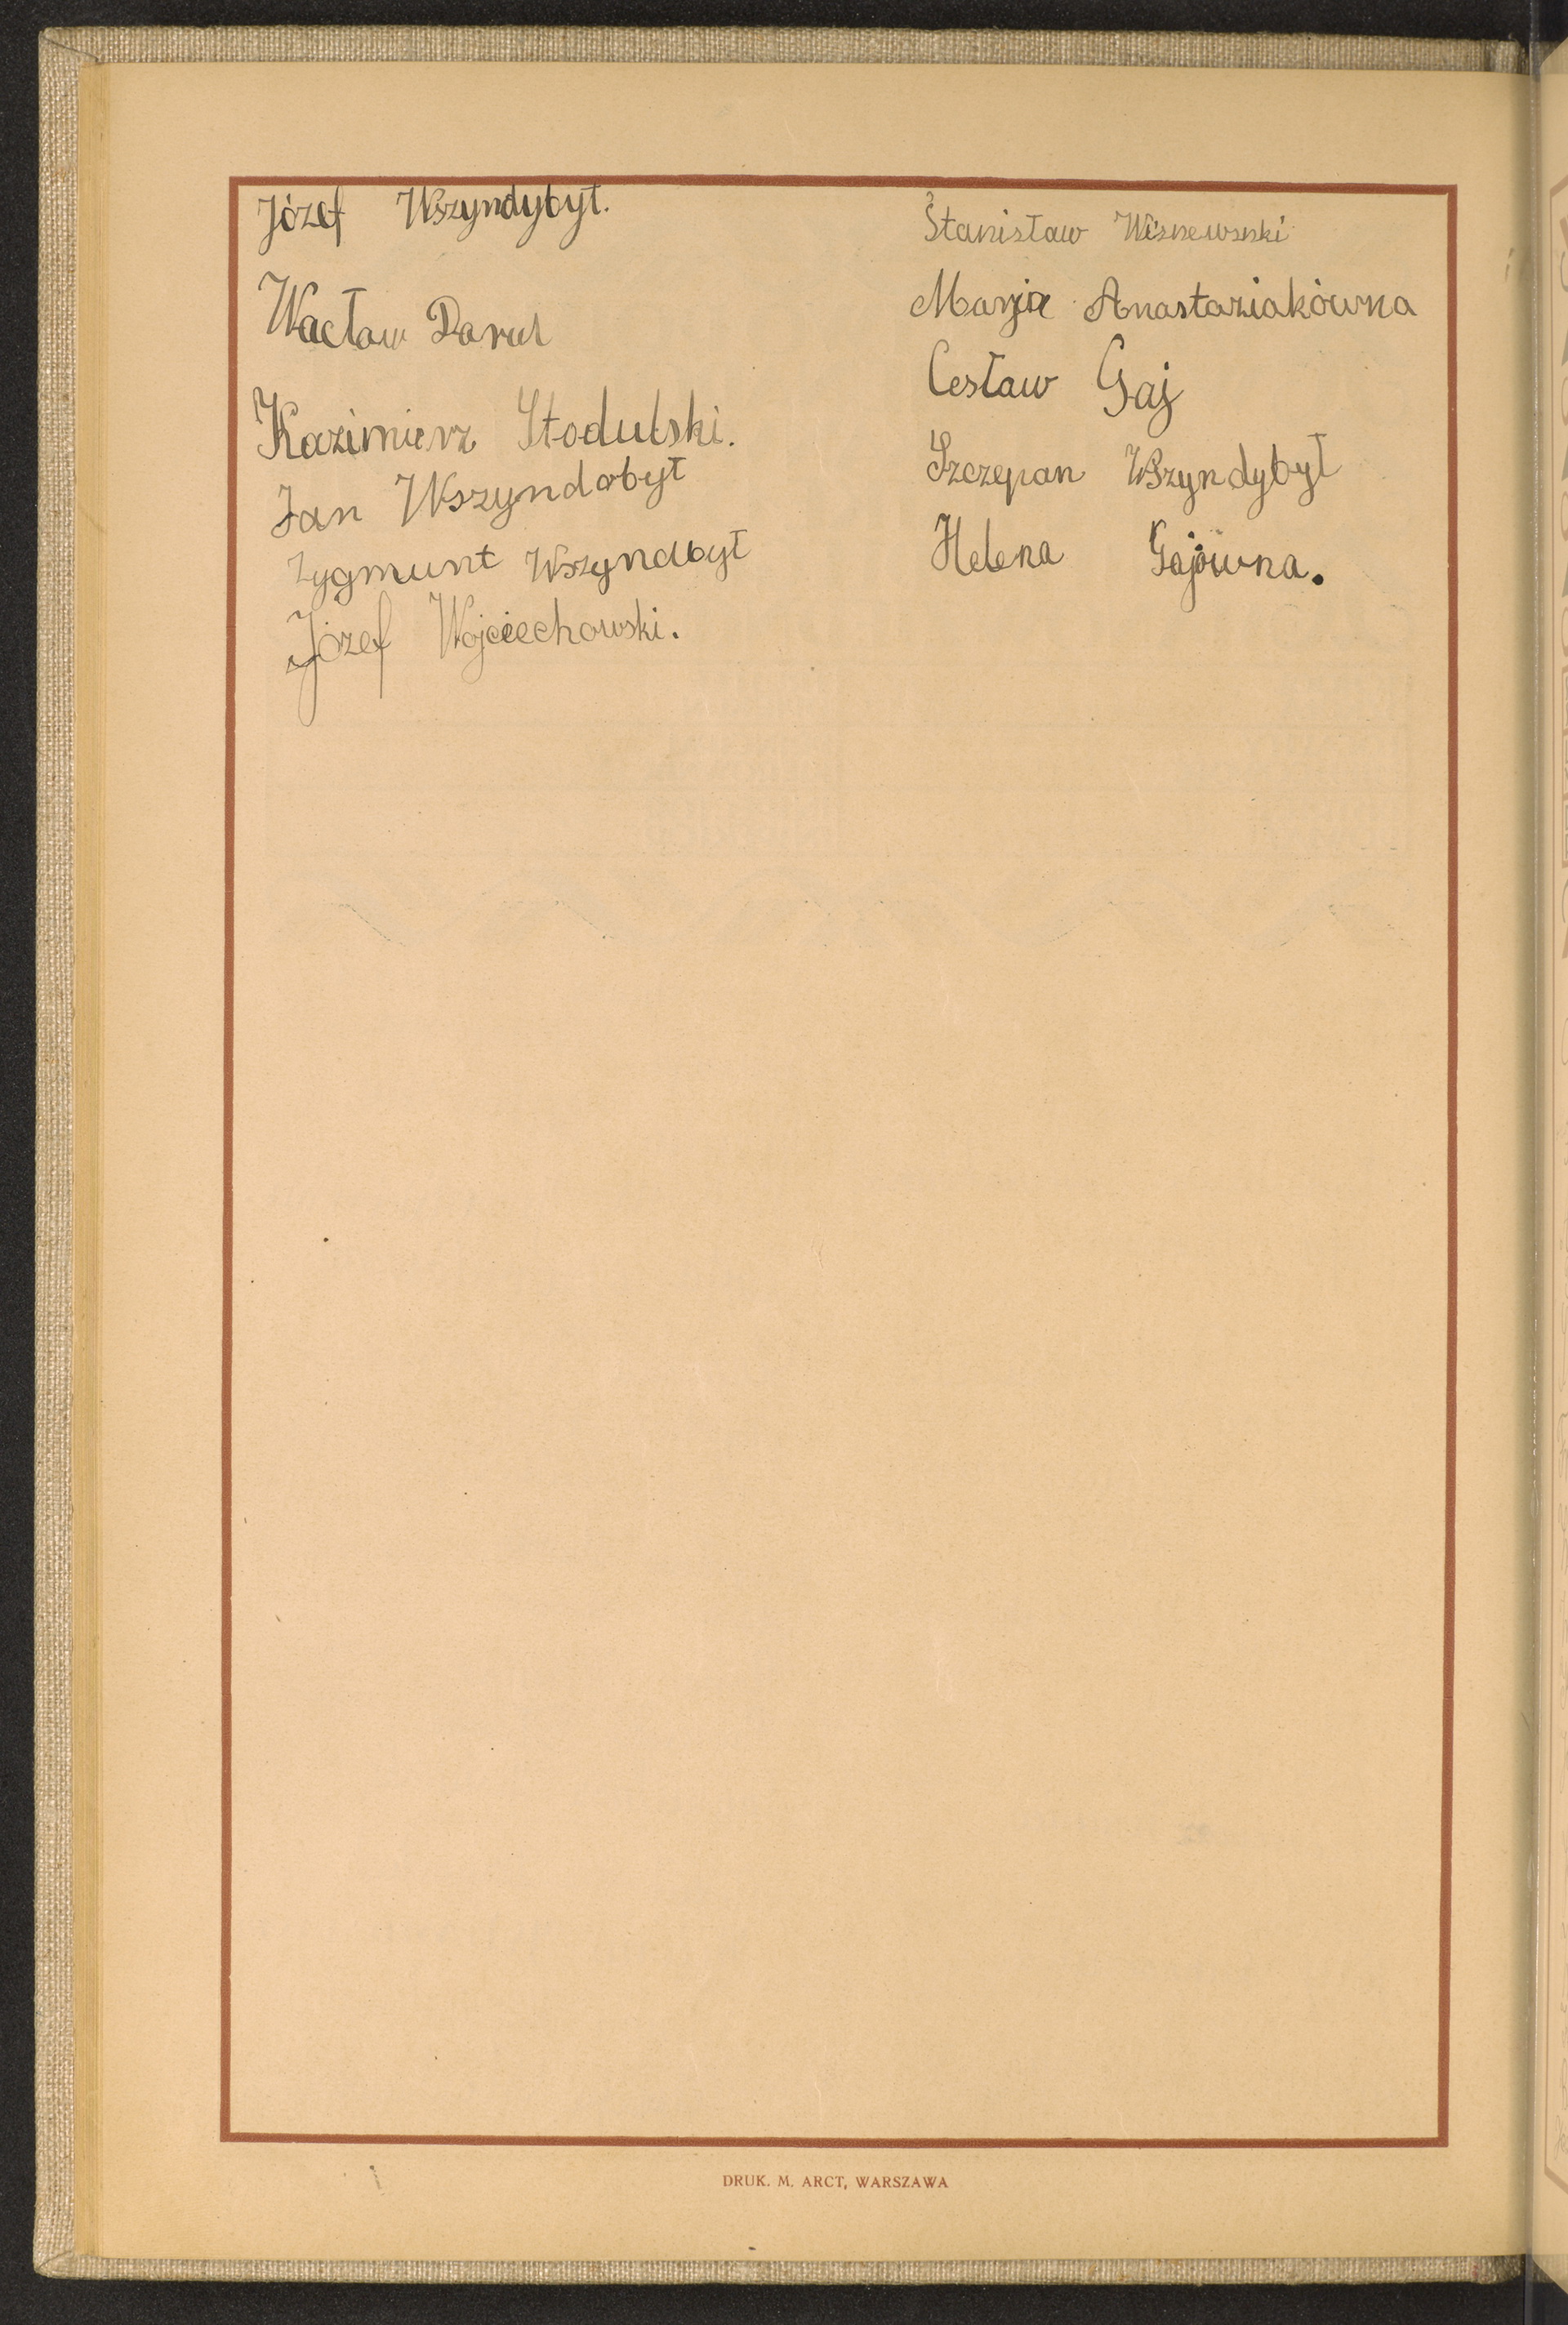 Józef Wszyndybył.
Wacław Darul
Kazimierz Stodulski.
Jan Wszyndobył
Zygmunt Wszyndbył
Józef Wojciechowski.
Stanisław Wisnewsnki
Marja Anastaziakówna
Cesław Gaj
Szczepan Wszyndybył
Helena Gajówna.
DRUK. M. ARCT, WARSZAWA